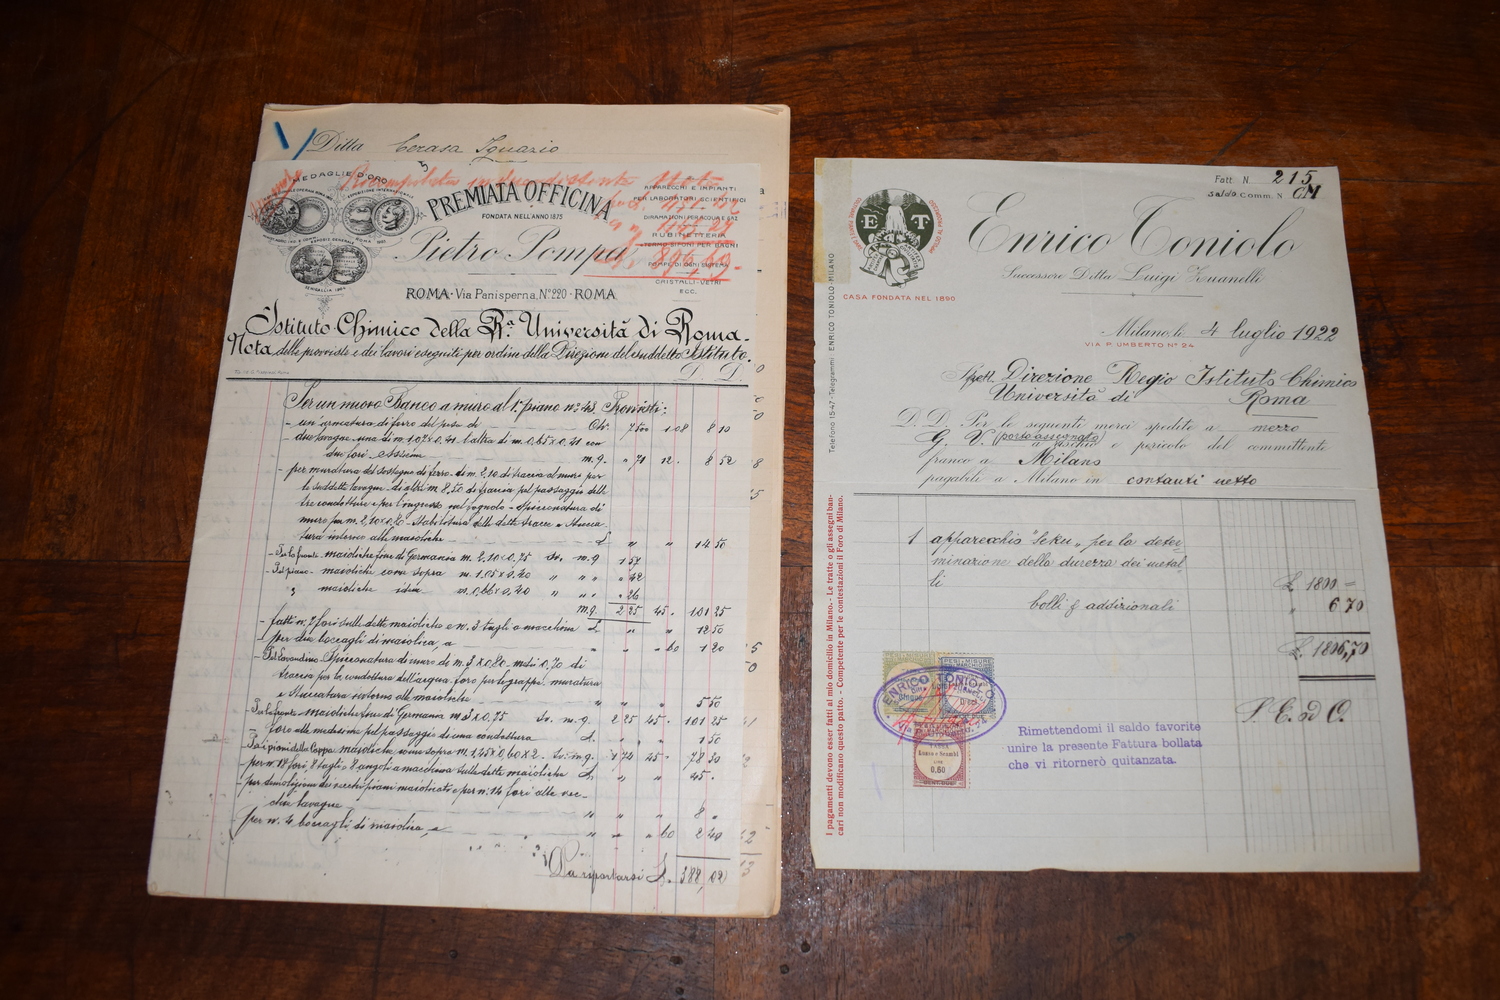 Ditta Cerasa Ignazio
MEDAGLIE D'ORO
PREMIATA OFFICINA
FONDATA NELL'ANNO 1875
Pietro Pompa
ROMA · Via Panisperna, N.º 220 · ROMA
APPARECCHI E IMPIANTI
PER LABORATORI SCIENTIFICI
DIRAMAZIONI PER ACQUA E GAZ
RUBINETTERIA
TERMO SIFONI PER BAGNI
POMPE DI OGNI SISTEMA
CRISTALLI-VETRI
ECC.
ROMA
SENIGALLIA
Istituto Chimico della Rª Università di Roma.
Nota delle provviste e dei lavori eseguiti per ordine della Direzione del suddetto Istituto.
D. D.
Per un nuovo Banco a muro al 1º piano nº 43. Provvisti:
- un armatura di ferro del peso di Ch. 7500 1 08 8 10
- due lavagne una di m. 1,07x0,41 l'altra di m. 0,65x0,41 con
due fori assieme m.q. " 71 12. 8 52
- per muratura del sostegno di ferro di m. 2,10 di traccia al muro per
le suddette lavagne - di altri m. 8,50 di traccia pel passaggio delle
tre condotture e per l'ingresso nel fognolo - spicconatura di
muro per m. 2,10x0,20 - stabilitura delle dette tracce e stucca
tura intorno alle maioliche £ " " 14 50
- Per la fronte maioliche fine di Germania m. 2,10x0,75 Sv. m.q 1 57
- Pel piano - maioliche come sopra m. 1.05x0,40 " " " " 42
" maioliche idem m. 0,66x0,40 " " " 26
m.q. 2 25 45. 101 25
- fatti n. 7 fori sulle dette maioliche e n. 3 tagli a macchina £ " " 12 50
- per due boccagli di maiolica, a " " 60 1 20
- Pel Lavandino - Spicconatura di muro de m. 3x0,80 metri 0,70 di
traccia per la condottura dell'acqua, foro per le grappe, muratura
e stuccatura intorno alle maioliche " " " 5 50
- Per la fronte maioliche fine di Germania m 3x0,75 Sv. m.q. 2 25 45. 101 25
foro alle medesime pel passaggio di una condottura £. " " 1 50
- Pei piani della Cappa maioliche come sopra m. 1,45x0,60x2. Sv. m.q. 1 74 45. 78 30
- per n. 18 fori 8 tagli e 8 angoli a macchina sulle dette maioliche £ " " 45.
- per demolizione dei vecchi piani maiolicati e per n. 14 fori alle vec-
chie lavagne " " " 8 "
- per n. 4 boccagli di maiolica, a " " " 60 2 40
Da riportarsi £. 388,02
Fatt. N. 215
saldo Comm. N. CM
E T
Enrico Toniolo
Successore Ditta Luigi Zuanelli
CASA FONDATA NEL 1890
Milano, li 4 luglio 1922
VIA P. UMBERTO Nº 24
Telefono 1547 - Telegrammi: ENRICO TONIOLO - MILANO
Spett. Direzione Regio Istituto Chimico
Università di Roma
D. D. Per le seguenti merci spedite a mezzo
G. V. (porto assegnato) a rischio e pericolo del committente
franco a Milano
pagabili a Milano in contanti netto
1 apparecchio "Leku" per la deter-
minazione della durezza dei metal-
li £ 1800 =
bolli & addizionali " 6 70
£. 1806,70
S. E. ed O.
I pagamenti devono esser fatti al mio domicilio in Milano. - Le tratte o gli assegni ban-
cari non modificano questo patto. - Competente per le contestazioni il Foro di Milano.
ENRICO TONIOLO
Lusso e Scambi
LIRE
0,60
Rimettendomi il saldo favorite
unire la presente Fattura bollata
che vi ritornerò quitanzata.